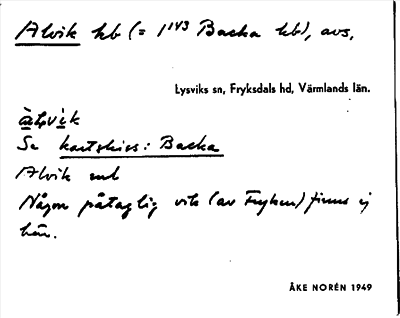 Alvik hb (= 1¹⁴³ Backa hb), avs.
Lysviks sn, Fryksdals hd, Värmlands län.
Se kartskiss: Backa
Alvik enl
Någon påtaglig vik (av Fryken) finns ej
här.
ÅKE NORÉN 1949